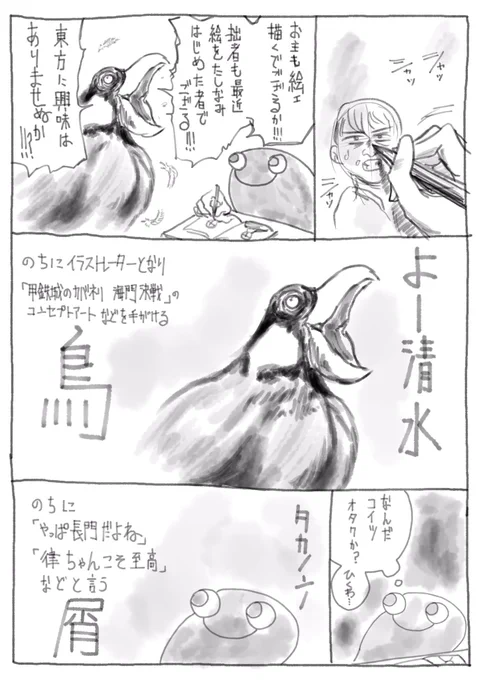 シャッ
シャッ
シャッ
お主も絵ェ
描くでござるか!!!
拙者も最近
絵をたしなみ
はじめた者で
ござる!!!
東方に興味は
ありませぬか
!!?
よー清水
のちにイラストレーターとなり
「甲鉄城のカバネリ 海門決戦」の
コンセプトアートなどを手がける
鳥
なんだ
コイツ
オタクか?
ひくわ…
タカノンノ
のちに
「やっぱ長門だよね」
「律ちゃんこそ至高」
などと言う
屑